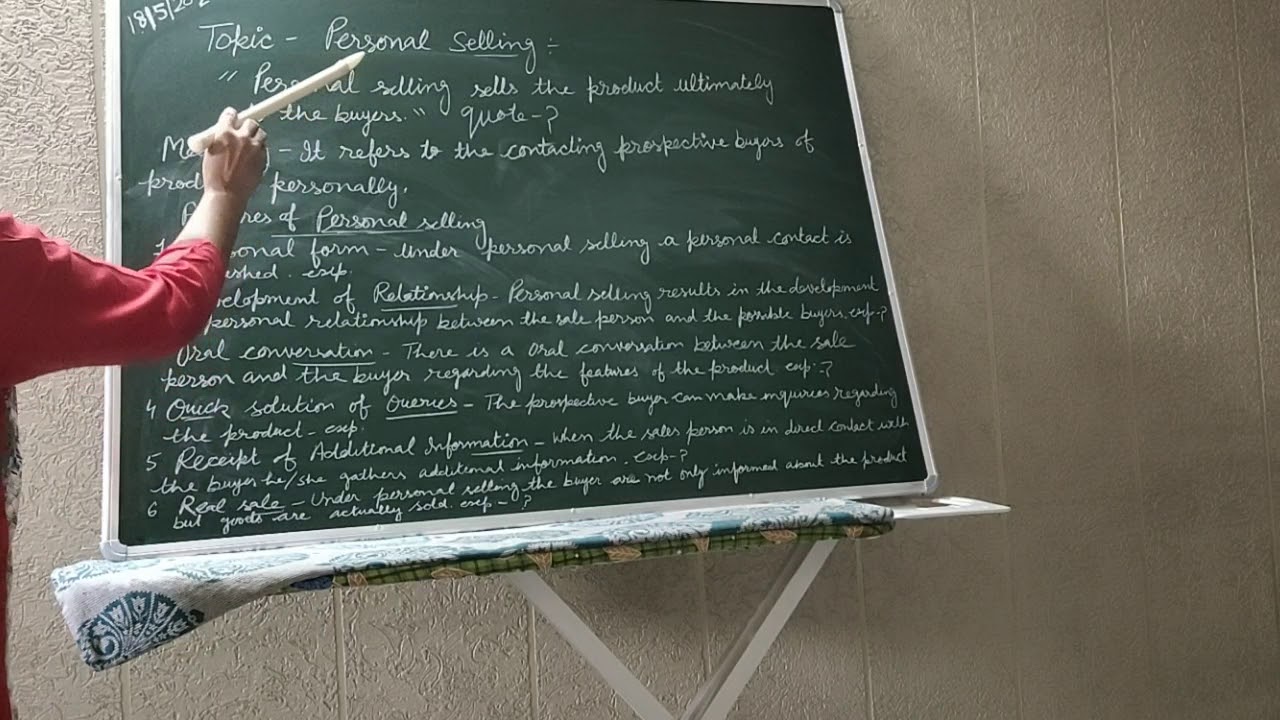 18/5/202
Topic - Personal Selling :-
" Personal selling sells the product ultimately
the buyers." quote-?
Me - It refers to the contacting prospective buyers of
prod personally.
res of Personal selling
onal form - Under personal selling a personal contact is
ished. exp.
velopment of Relationship - Personal selling results in the development
personal relationship between the sale person and the possible buyers. exp-?
Oral conversation - There is a oral conversation between the sale
person and the buyer regarding the features of the product exp.-?
4 Quick solution of Queries - The prospective buyer can make inquiries regarding
the product - exp.
5 Receipt of Additional Information - When the sales person is in direct contact with
the buyer he/she gathers additional information. exp-?
6 Real sale - Under personal selling the buyer are not only informed about the product
but goods are actually sold. exp - ?